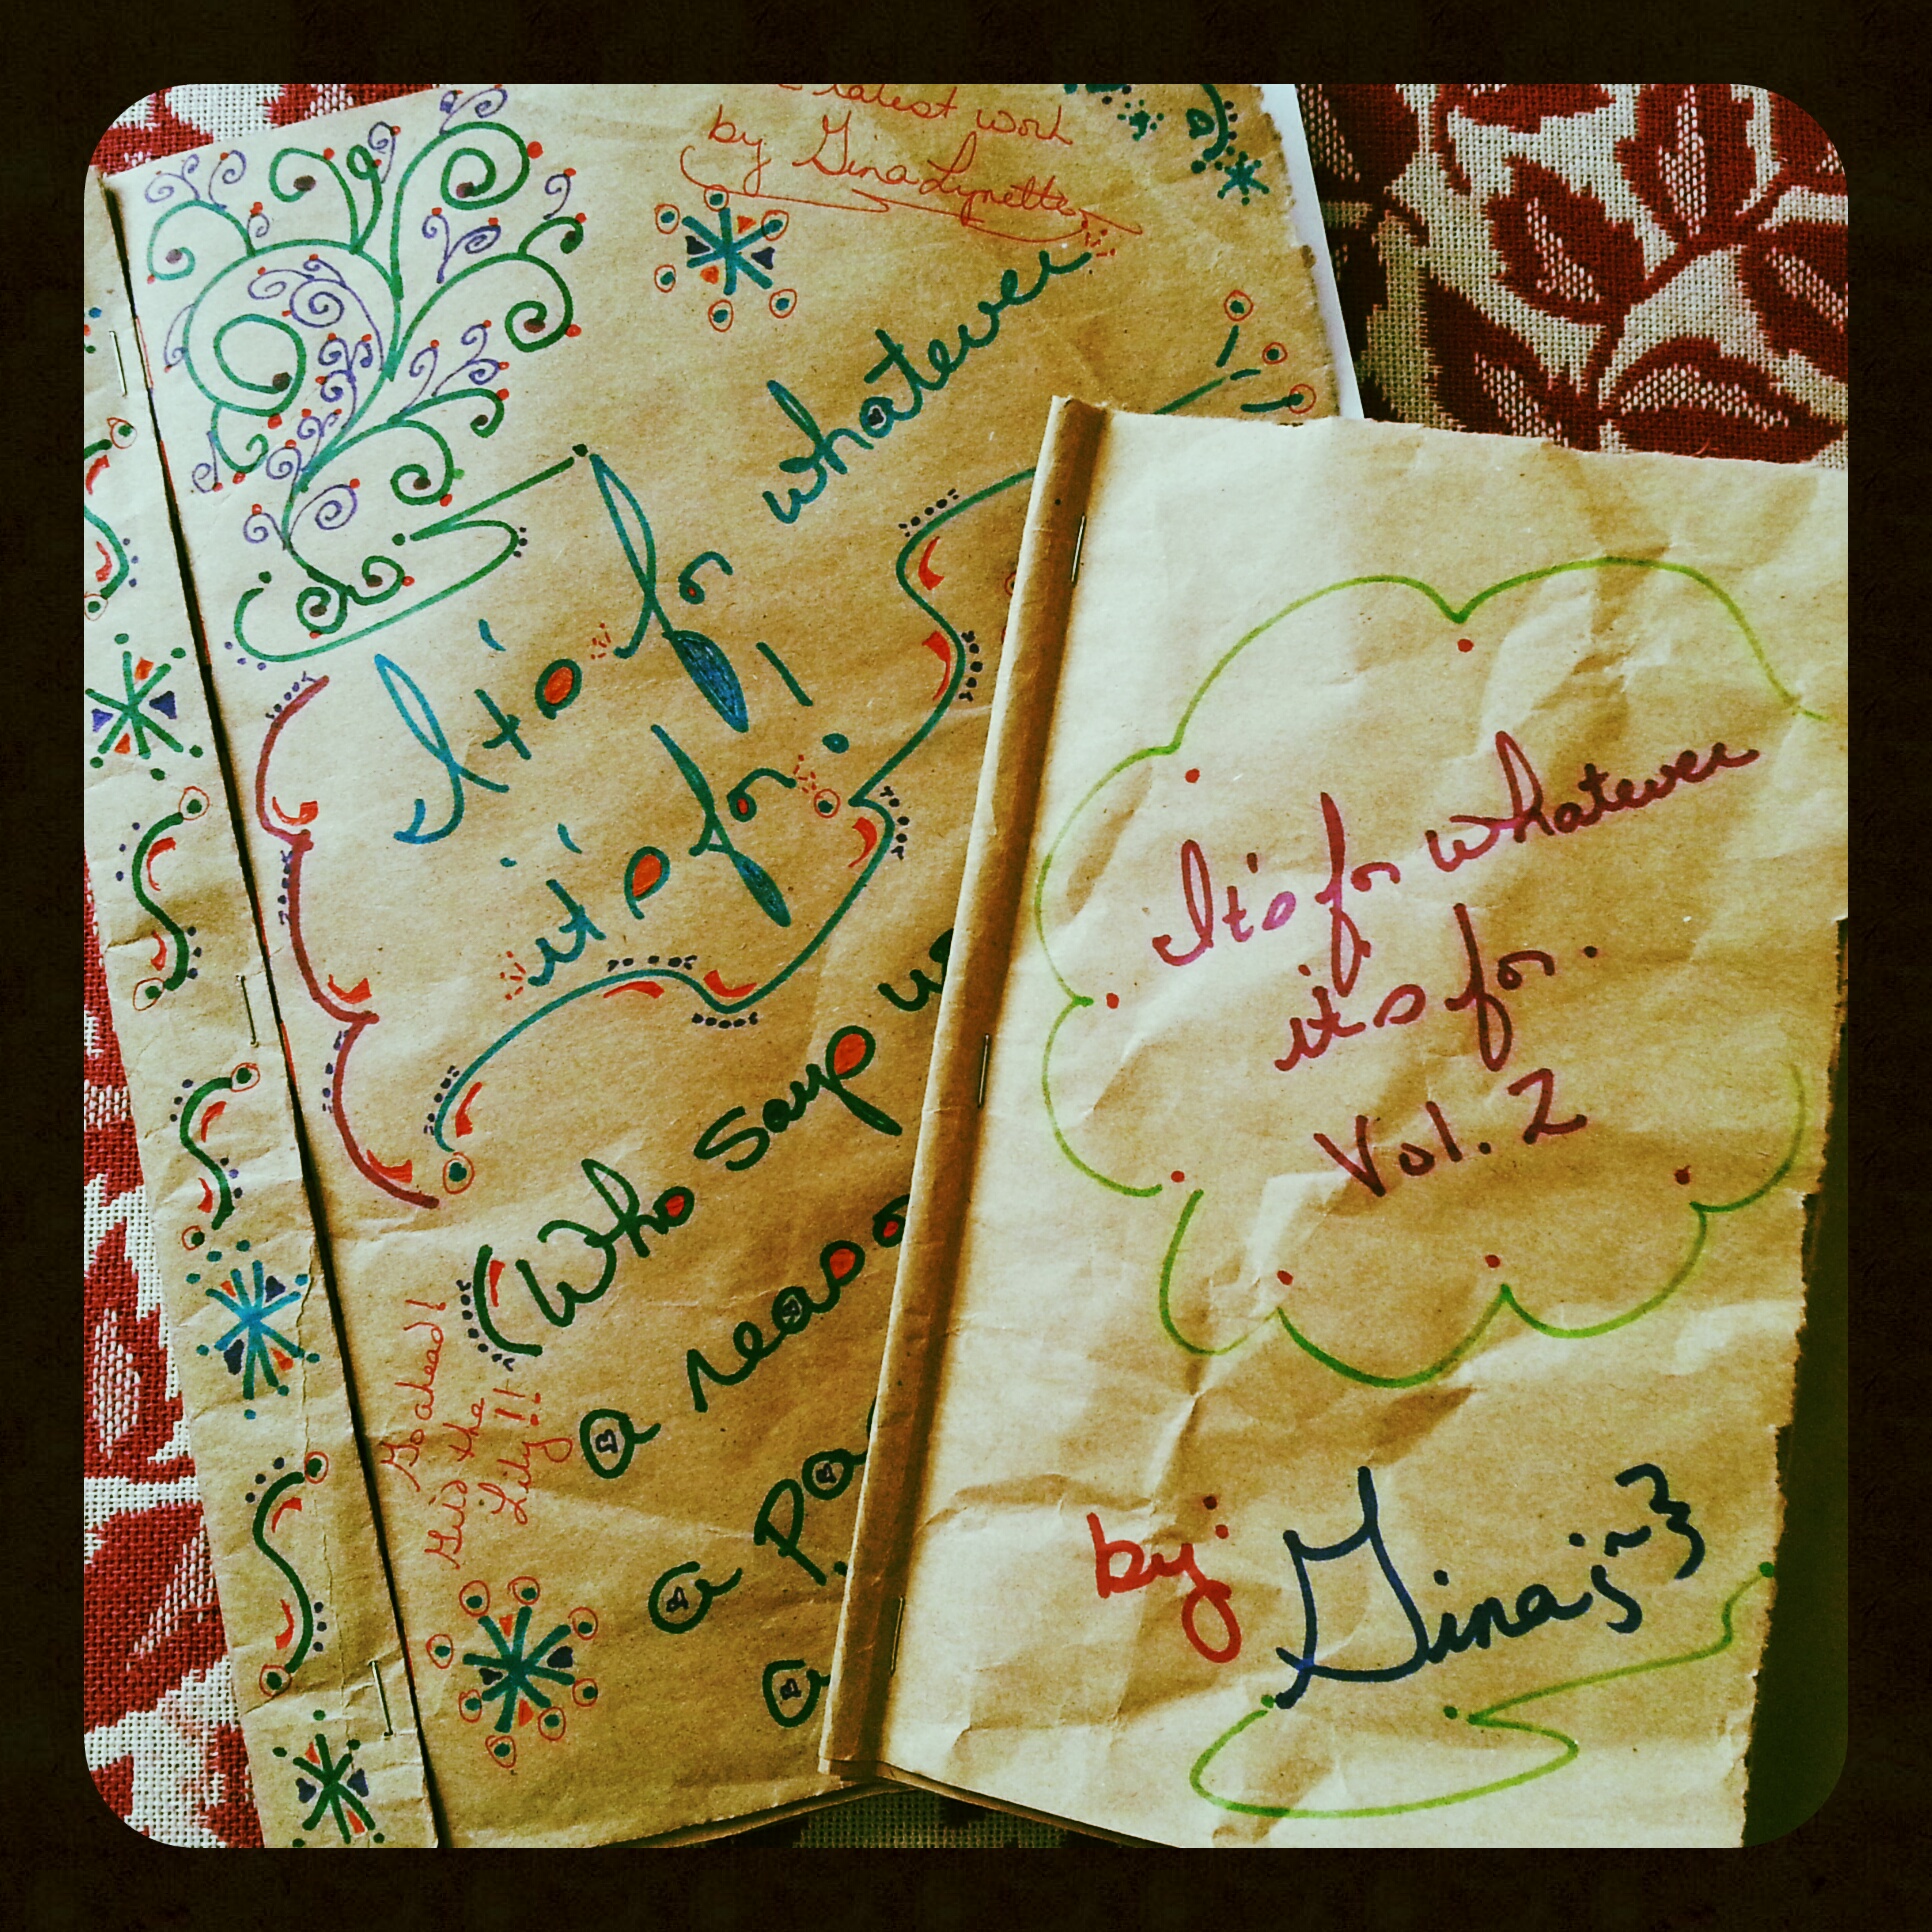 latest work
by Gina Lynette
It's for whatever
it's for!
(Who says
a reaso
a Pa
a
Go ahead!
Gis the
Lily!!
It's for whatever
it's for.
Vol. 2
by:
Gina